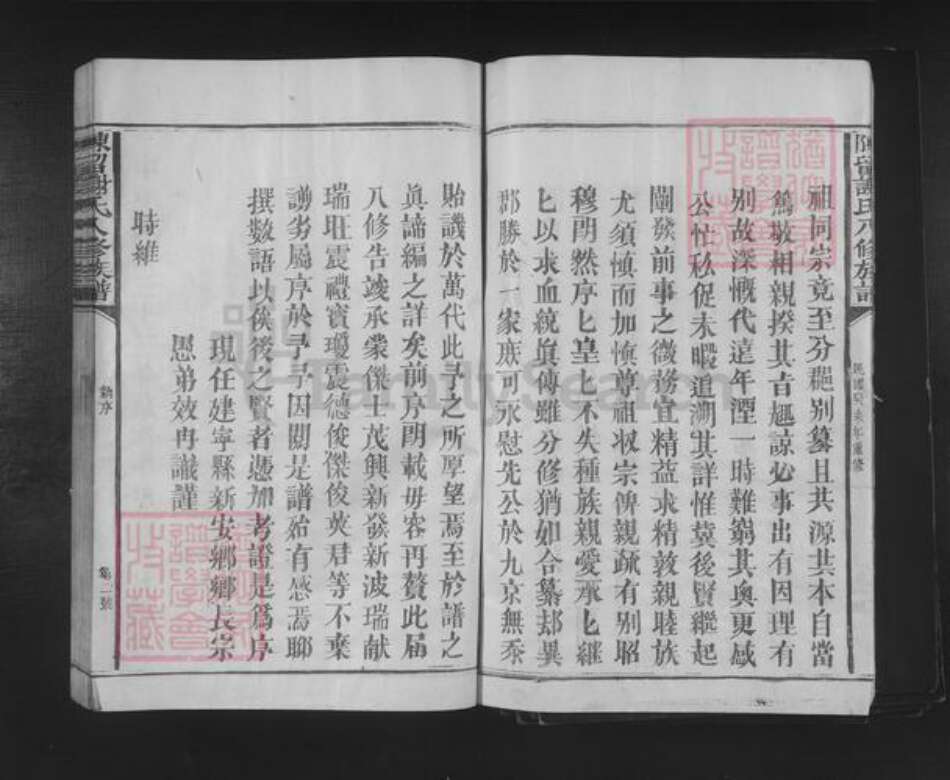 陳留謝氏八修族譜
民國癸未年重修
祖同宗竟至分龝別纂且共源其本自當
篤敬相親揆其旨趣諒必事出有因理有
別故深慨代遠年湮一時難窮其奥更感
公忙私促未暇追溯其詳惟冀後賢繼起
闡發前事之微務宜精益求精敦親睦族
尤須慎而加慎尊祖収宗俾親疏有別昭
穆朗然序匕皇上不失種族親愛承匕繼
匕以求血統真傳雖分修猶如合纂刼異
郡勝於一家庶可永慰先公於九京無忝
貽譏於萬代此予之所厚望焉至於譜之
眞諦編之詳矣前序朗載毋容再贅此届
八修告竣承蒙傑士茂興新發新波瑞献
瑞旺震禮寶瓊震德俊傑俊英君等不棄
謭劣屬序於予予因關是譜殆有感焉聊
撰数語以俟後之賢者憑加考證是爲序
現任建寧縣新安鄉鄉長宗
愚弟效冉識謹
時維
陳留謝氏八修族譜
第二號
FamilySearch